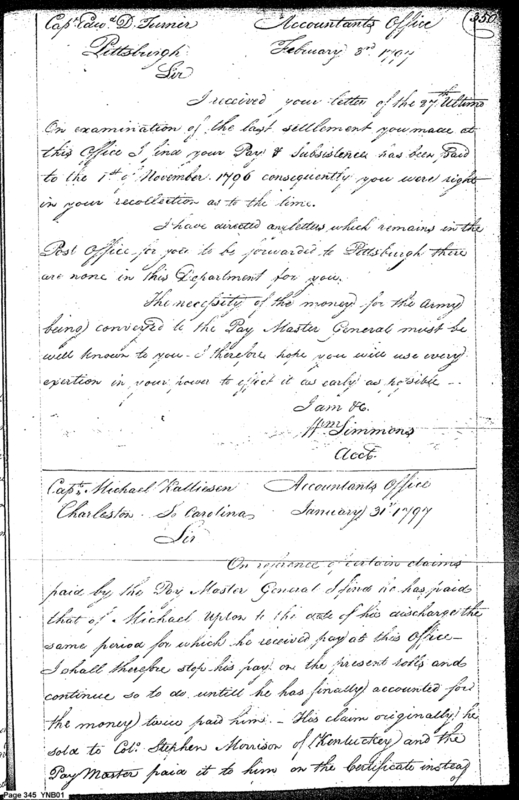 350
Capt. Edwd. D. Turner Accountants Office
Pittsburgh February 3rd 1797
Sir
I received your letter of the 27th Ultimo
On examination of the last settlement you made at
this Office I find your Pay & Subsistence has been paid
to the 1st of November 1796 consequently you were right
in your recollection as to the time.
I have directed any letters which remains in the
Post Office for you to be forwarded to Pittsburgh there
are none in this Department for you.
The necessity of the money for the Army
being converted to the Pay Master General must be
well known to you I therefore hope you will use every
exertion in your power to effect it as early as possible
I am &c.
Wm. Simmons
Acct.
Capt. Michael Kalliesen Accountants Office
Charleston So. Carolina January 31st 1797
Sir
On reference of certain claims
paid by the Pay Master General I find he has paid
that of Michael Upton to the date of his discharge the
same period for which he received pay at this Office
I shall therefore stop his pay on the present rolls and
continue so to do untill he has finally accounted for
the money twice paid him. His claim originally he
sold to Colo. Stephen Morrison of (Kentuckey) and the
Pay Master paid it to him on the Certificate instead
of
Page 345 YNB01